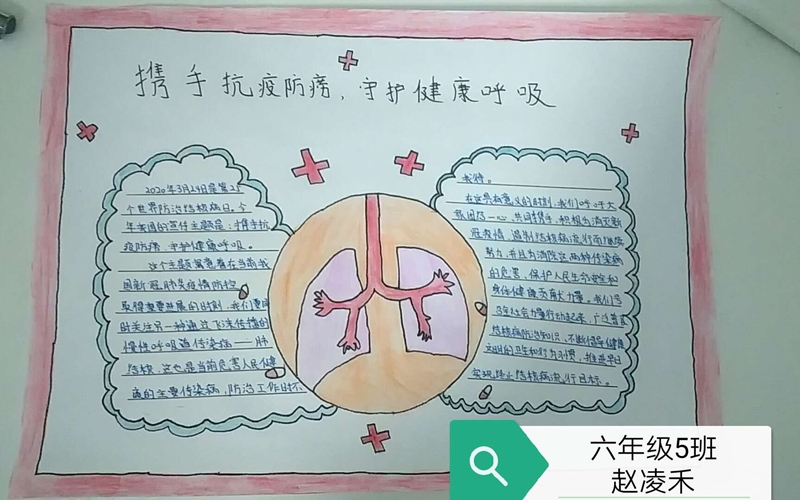 携手抗疫防痨，守护健康呼吸
2020年3月24日是第25
个世界防治结核病日。今
年我国的宣传主题是：携手抗
疫防痨 守护健康呼吸。
这个主题寓意着在当前我
国新冠肺炎疫情防控
取得重要进展的时刻，我们要同
时关注另一种通过飞沫传播的
慢性呼吸道传染病——肺
结核，这也是当前危害人民健
康的主要传染病，防治工作时不
我待。
在这具有意义的时刻，我们呼吁大
家团结一心，共同携手，积极为消灭新
冠疫情，遏制结核病流行而继续
努力，并且为消除这两种传染病
的危害，保护人民生命安全和
身体健康贡献力量。我们号
召社会力量行动起来，广泛普及
结核病防治知识，不断倡导健康
文明的卫生和行为习惯，推进早日
实现终止结核病流行目标。
六年级5班
赵凌禾